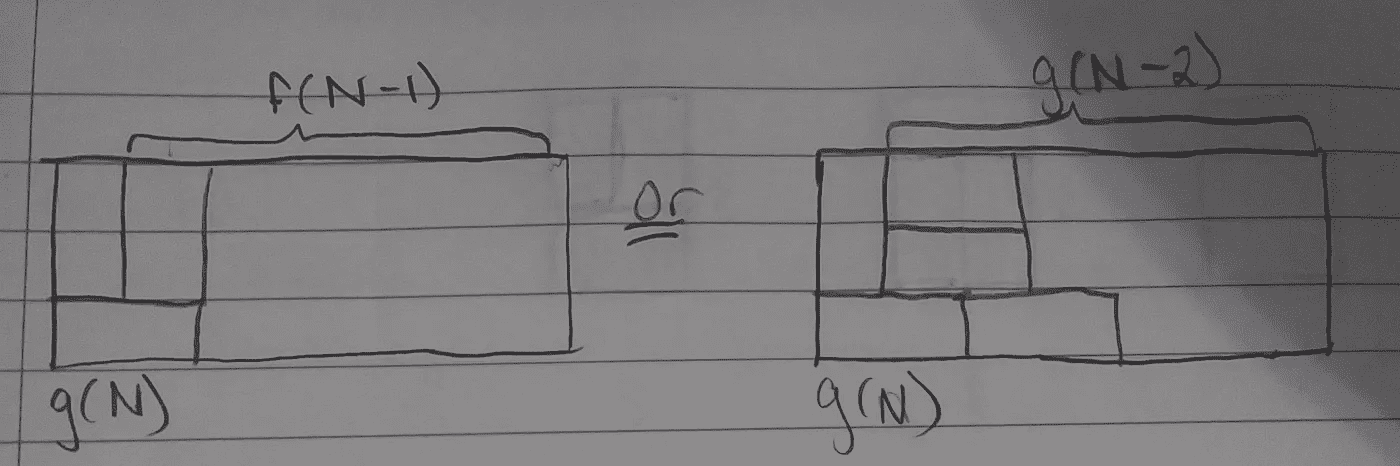 f(N-1)
g(N-2)
or
g(N)
g(N)